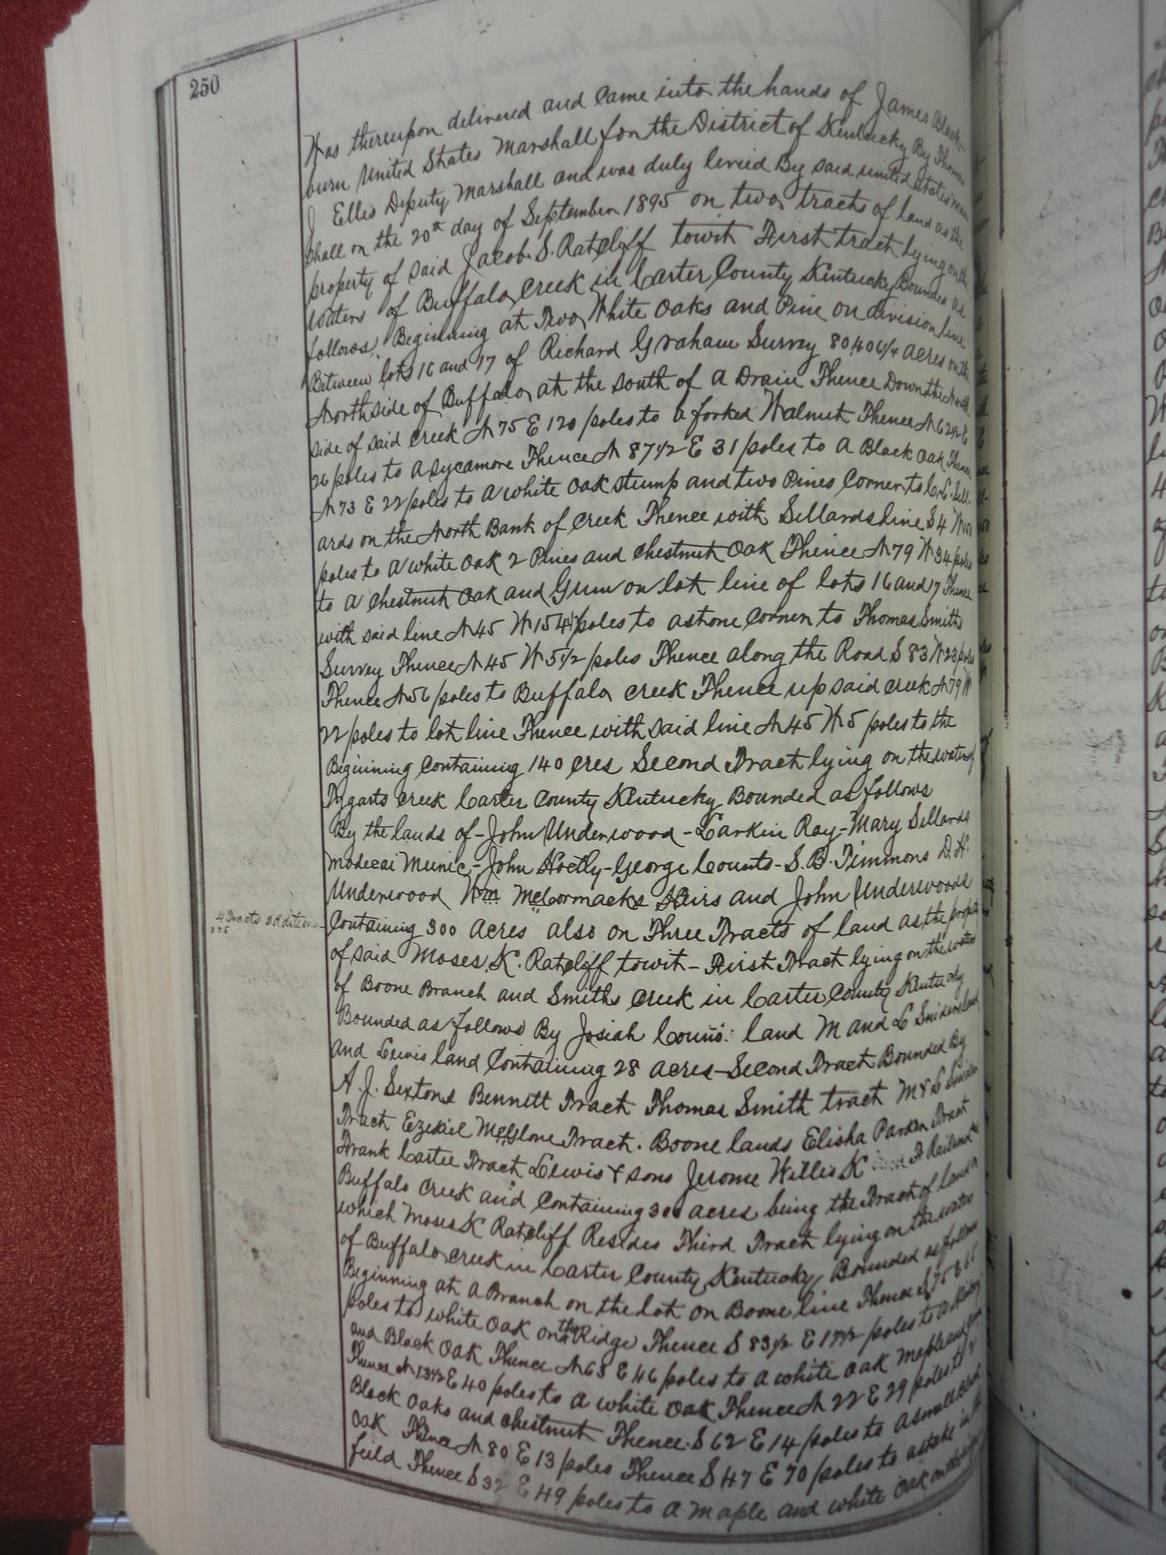 250
Was thereupon delivered and Came into the hands of James Black-
burn United States Marshall for the District of Kentucky By Thomas
J Ellis Deputy Marshall and was duly levied By said united states mar
shall on the 20th day of September 1895 on two tracts of land as the
property of said Jacob S. Ratcliff towit First tract lying on the
waters of Buffalo Creek in Carter County Kentucky Bounded as
follows. Beginning at Two White Oaks and Pine on division line
Between lots 16 and 17 of Richard Graham Survey 80,406 1/4 acres on the
North side of Buffalo at the south of a Drain Thence Down the North
side of said Creek N 75 E 120 poles to a forked Walnut Thence N 62 1/2 E
26 poles to a sycamore Thence N 87 1/2 E 31 poles to a Black Oak Thence
N 73 E 22 poles to a white Oak stump and two Pines Corner to Sill-
ards on the North Bank of Creek Thence with Sellards line S 4 W
poles to a white Oak 2 Pines and Chestnut Oak Thence N 79 W 34 poles
to a Chestnut Oak and Gum on lot line of lots 16 and 17 Thence
with said line N 45 W 154 poles to a stone Corner to Thomas Smiths
Survey Thence N 45 W 5 1/2 poles Thence along the Road S 83 W 23 poles
Thence N 56 poles to Buffalo creek Thence up said creek N 79 W
22 poles to lot line Thence with said line N 45 W 5 poles to the
Beginning Containing 140 cres Second Tract lying on the waters of
Tygarts Creek Carter County Kentucky Bounded as follows
By the lands of - John Underwood - Larkin Ray - Mary Sellards
John - George Counts - S. B. Timmons D. H.
Underwood Wm McCormacks Heirs and John Underwoods
4 Tracts addition
Containing 300 acres also on Three Tracts of land as the
of said Moses K. Ratcliff towit - First Tract lying on the waters
of Boone Branch and Smiths Creek in Carter County Kentucky
Bounded as follows By Josiah land M and L land
and Lewis land Containing 28 acres - Second Tract Bounded By
A. J. Sextons Bennett Tract Thomas Smith tract M & L
Tract Ezekiel McGlone Tract. Boone lands Elisha Parker Tract
Frank Carter Tract Lewis & sons Jerome Willis K Railroad
Buffalo Creek and Containing 300 acres being the Tract of land
which Moses K Ratcliff Resides Third Tract lying on the waters
of Buffalo creek in Carter County Kentucky Bounded as follows
Beginning at a Branch on the lot on Boone line Thence S 75 E
poles to white Oak on the Ridge Thence S 83 1/2 E 17 1/2 poles to a
and Black Oak Thence N 68 E 46 poles to a white Oak Maple and
Thence N 13 1/2 E 40 poles to a white Oak Thence N 22 E 29 poles to 2
Black Oaks and Chestnut Thence S 62 E 14 poles to a small Black
Oak Thence N 80 E 13 poles Thence S 47 E 70 poles to a stake in the
field Thence S 32 E 49 poles to a Maple and white Oak on the